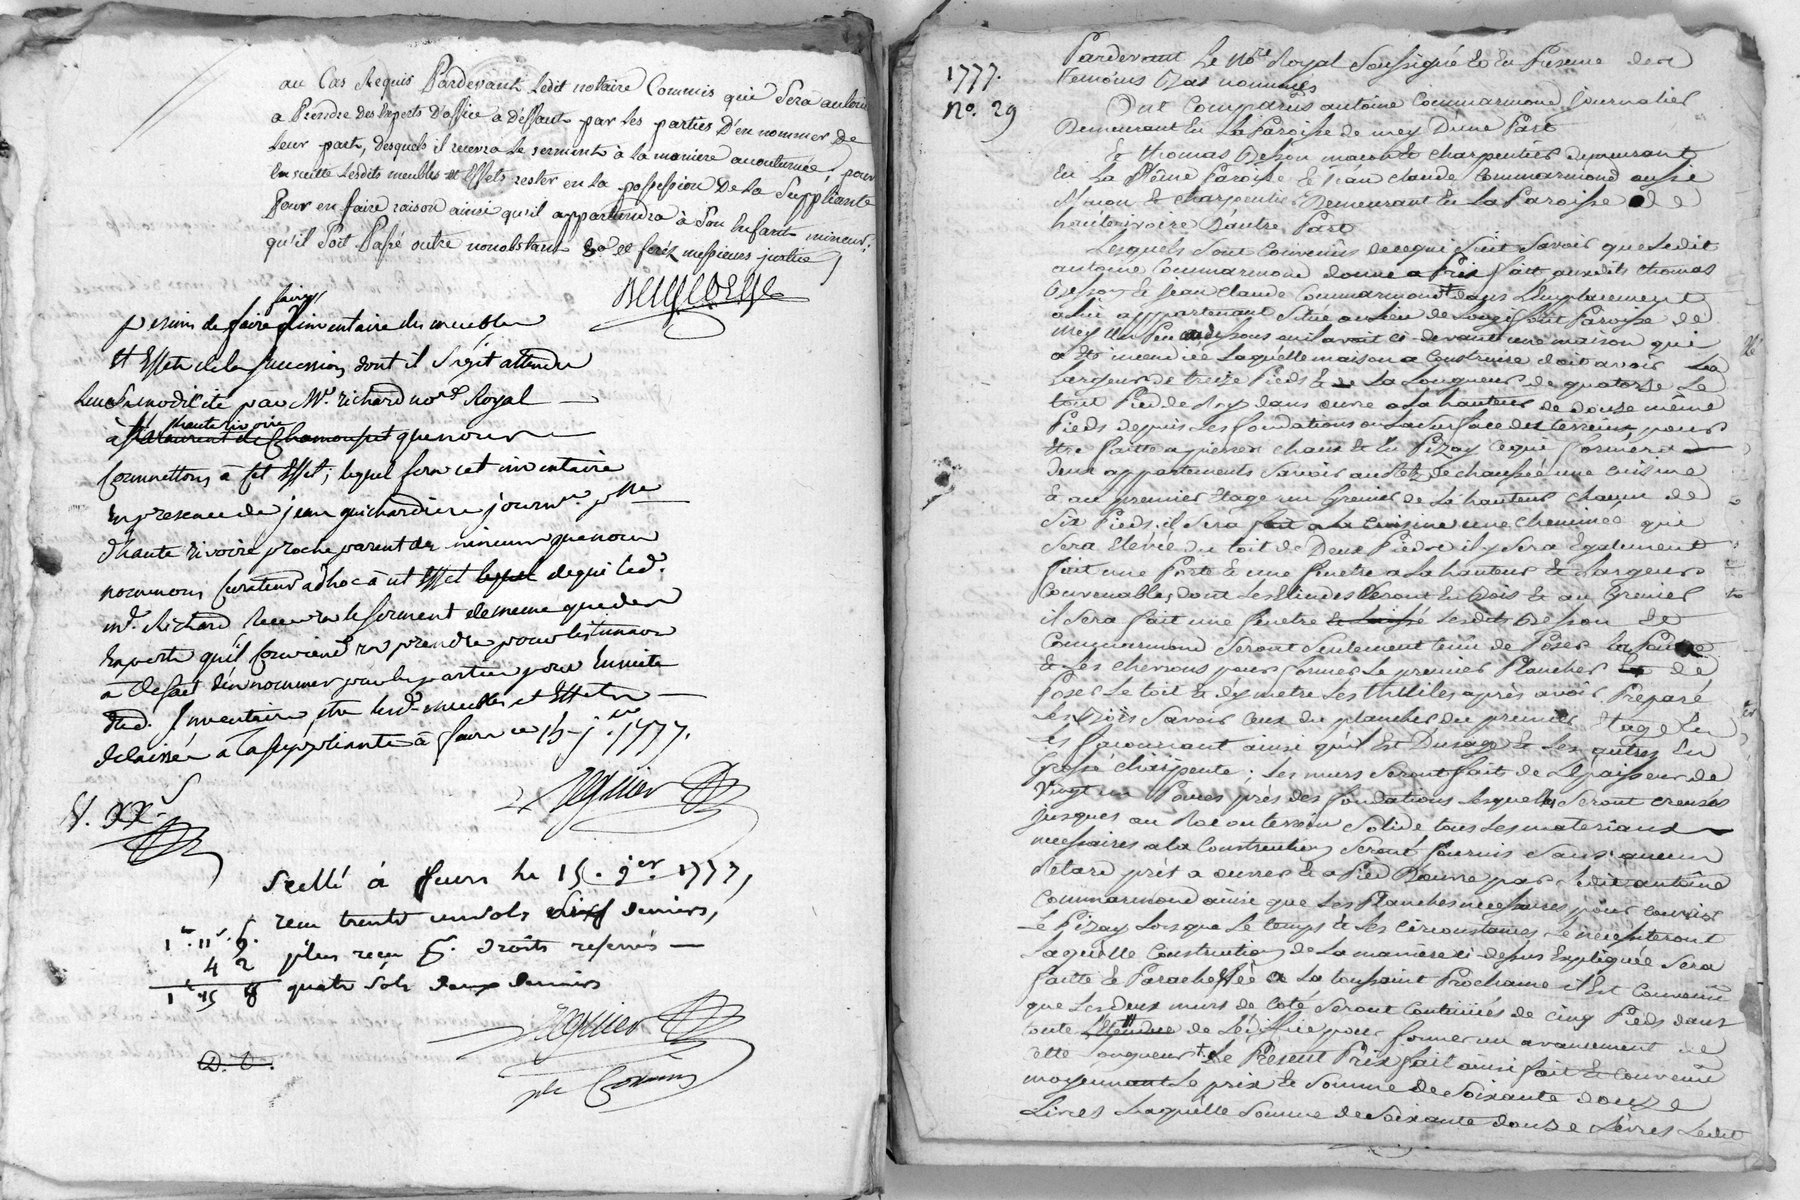 au Cas Requis Pardevant Ledit notaire Commis qui Sera
a Prendre des Experts D'office à Deffaut par les parties D'en nommer de
leur part, desquels il recevra le serment à la maniere accoutumée, pour
En suitte Lesdits meubles et Effets rester en la possession De la Suppliante
Pour en faire raison ainsi qu'il appartiendra à Son Enfant mineur,
qu'il soit Passé outre nonobstant messieurs justice
faire
permis de faire l'inventaire des meubles
Et Effets de la succession dont il s'agit attendu
par Me. richard nore. Royal
haute rivoire
à St laurent de Chamousset que nous
Commettons à cet Effet, lequel fera cet inventaire
En presence de jean guichardiere journr.
d'haute rivoire proche parent des mineurs que nous
nommons Curateur adhoc à cet Effet lequel de qui led.
me. Richard recevra le serment de meme que des
Experts qu'il Conviendra prendre pour
a deffaut d'en nommer par les parties pour Ensuite
dud. Inventaire être lesd. meubles et Effets
delaissés a la suppliante à feurs ce 15 1777.
V. XX s
Scellé à feurs le 15. 9er. 1777,
recu trente un sols six deniers,
1 . 11 . 6.
plus recu p. droits reservés
4 2
quatre sols deux deniers
1 15 8
par Commis
1777.
No. 29
Pardevant Le Nore Royal Soussigné Et En Presence des
Temoins Bas nommés
Ont Comparus antoine Commarmond Journalier
Demeurant En La Paroisse de mey D'une Part
Et thomas Besson macon Et charpentier demeurant
En La Même Paroisse Et jean claude Commarmond aussi
Maçon Et charpentier Demeurant En La Paroisse de
hauterivoire D'autre Part
Lesquels Sont Convenus de ce qui Suit Savoir que Ledit
antoine Commarmond donne a Prix fait auxdits thomas
Besson Et Jean Claude Commarmond dans L'emplacement
a lui appartenant Situé au lieu de Paroisse de
Mey Un Peu au dessous ou il avait ci-devant une maison qui
a Eté incendiée Laquelle maison a Construire doit avoir La
Largeur de treize Pieds Et de La Longueur de quatorze Le
tout Pied de Roy dans œuvre a La hauteur de douze même
Pieds depuis Les fondations ou La surface des terreins, pour
Etre faitte a pierre chaux Et En Pizay ce qui formera
deux appartements Savoir au Retz de chaussée une cuisine
Et au premier Etage un Grenier de La hauteur chacun de
Six Pieds, il Sera fait a La cuisine une cheminée qui
Sera Elevée du toit de Deux Pieds il y Sera Egalement
fait une Porte Et une fenetre a La hauteur Et Largeur
Convenables dont Les Seront En Bois Et au Grenier
il Sera fait une fenetre Lesdits Besson Et
Commarmond Seront Seulement tenu de Poser La Poutre
Et Les chevrons pour former Le premier Plancher Et de
Poser Le toit Et d'y metre Les thuilles après avoir Preparé
Les Bois Savoir ceux du plancher du premier Etage En
Les Et D'usage Et Les autres En
grosse charpente; Les murs Seront faits de L'Epaisseur de
Vingt un Pouces près des fondations Lesquelles Seront creusées
jusques au Roc ou terrein Solide tous Les materiaux
necessaires a La Construction Seront fournis Sans aucun
Retard près a œuvrer Et a Pied D'œuvre par Ledit antoine
Commarmond ainsi que Les Planches necessaires pour couvrir
Le Pizay Lorsque Le temps Et Les circonstances Le necessiteront
Laquelle Construction de La maniere ci-dessus Expliquée Sera
faitte Et Parachevée a La toussaint Prochaine il Est Convenu
que Les deux murs de coté Seront Continués de cinq Pieds dans
oute de L'Edifice pour former un avancement de
ette Longueur Le Present Prix fait ainsi fait Et Convenu
moyennant Le prix Et Somme de Soixante douze
Livres Laquelle Somme de Soixante douze Livres Ledit